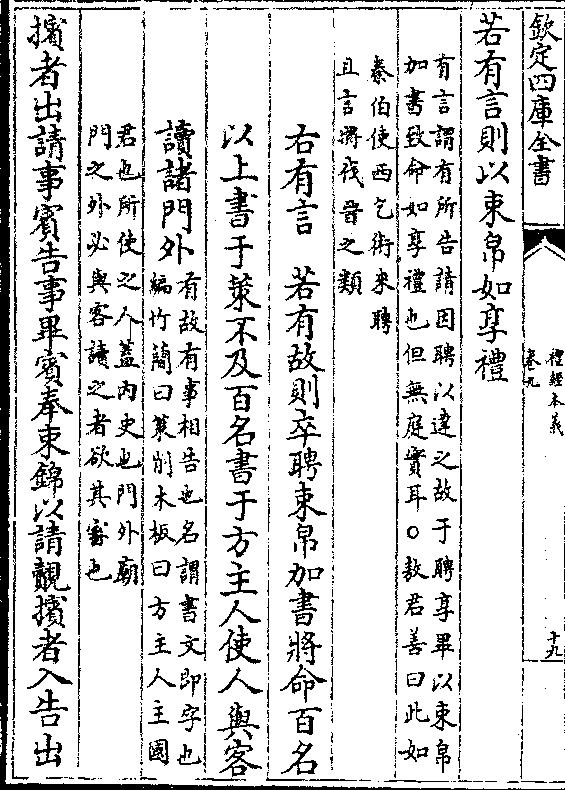 欽定四庫全書
禮經本義
卷九
十九
若有言則以束帛如享禮
有言謂有所告請因聘以達之故于聘享畢以束帛
加書致命如享禮也但無庭實耳○敖君善曰此如
秦伯使西乞術來聘
且言將伐晉之類
右有言　若有故則卒聘束帛加書將命百名
以上書于策不及百名書于方主人使人與客
讀諸門外
有故有事相告也名謂書文即字也
編竹簡曰策削木板曰方主人主國
君也所使之人蓋內史也門外廟
門之外必與客讀之者欲其審也
擯者出請事賓告事畢賓奉束錦以請覿擯者入告出